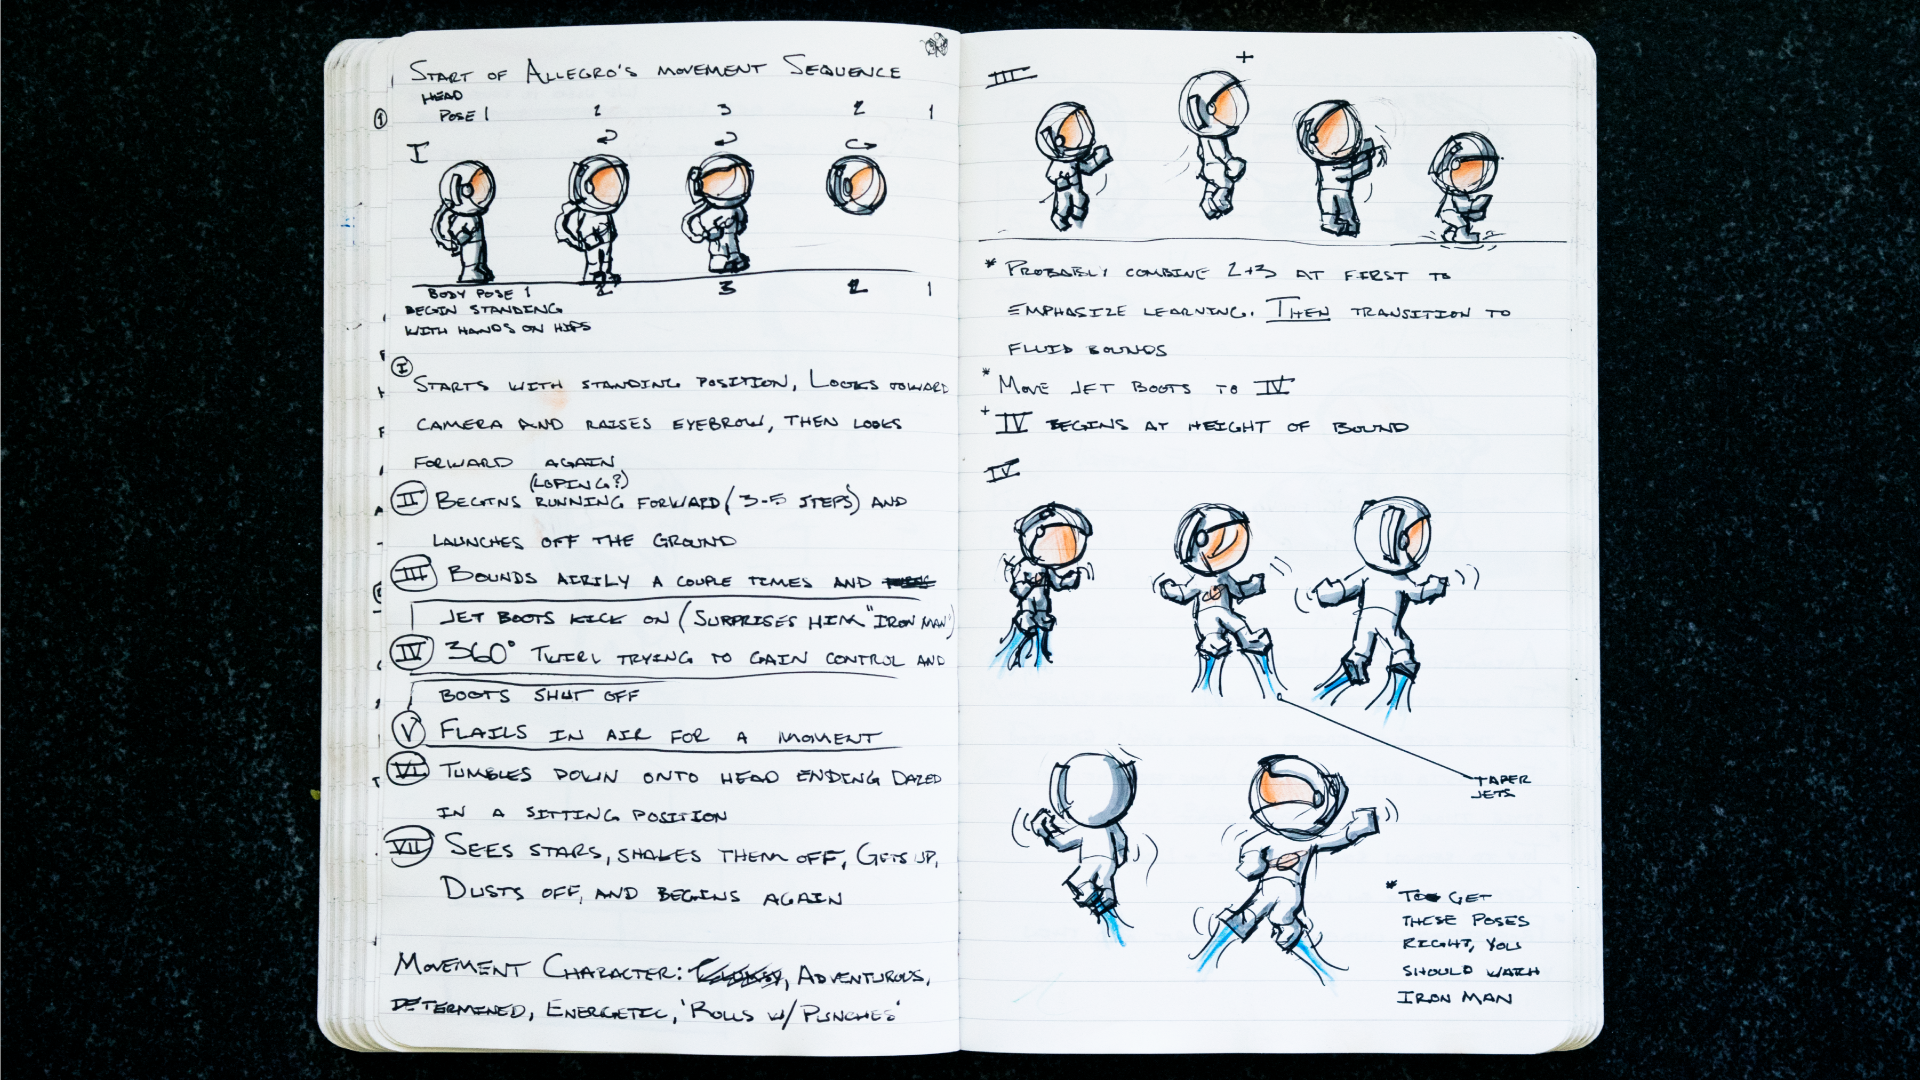 START OF ALLEGRO'S MOVEMENT SEQUENCE
HEAD
POSE 1 2 3 2 1
1
I
BODY POSE 1 2 3 2 1
BEGIN STANDING
WITH HANDS ON HIPS
I
STARTS WITH STANDING POSITION, LOOKS TOWARD
CAMERA AND RAISES EYEBROW, THEN LOOKS
FORWARD AGAIN
(LOPING?)
II BEGINS RUNNING FORWARD (3-5 STEPS) AND
LAUNCHES OFF THE GROUND
III BOUNDS AIRILY A COUPLE TIMES AND
JET BOOTS KICK ON (SURPRISES HIM "IRON MAN")
IV 360° TWIRL TRYING TO GAIN CONTROL AND
BOOTS SHUT OFF
V FLAILS IN AIR FOR A MOMENT
VI TUMBLES DOWN ONTO HEAD ENDING DAZED
IN A SITTING POSITION
VII SEES STARS, SHAKES THEM OFF, GETS UP,
DUSTS OFF, AND BEGINS AGAIN
MOVEMENT CHARACTER: , ADVENTUROUS,
DETERMINED, ENERGETIC, 'ROLLS W/ PUNCHES'
III
+
* PROBABLY COMBINE 2+3 AT FIRST TO
EMPHASIZE LEARNING. THEN TRANSITION TO
FLUID BOUNDS
* MOVE JET BOOTS TO IV
+ IV BEGINS AT HEIGHT OF BOUND
IV
TAPER
JETS
* TO GET
THESE POSES
RIGHT, YOU
SHOULD WATCH
IRON MAN